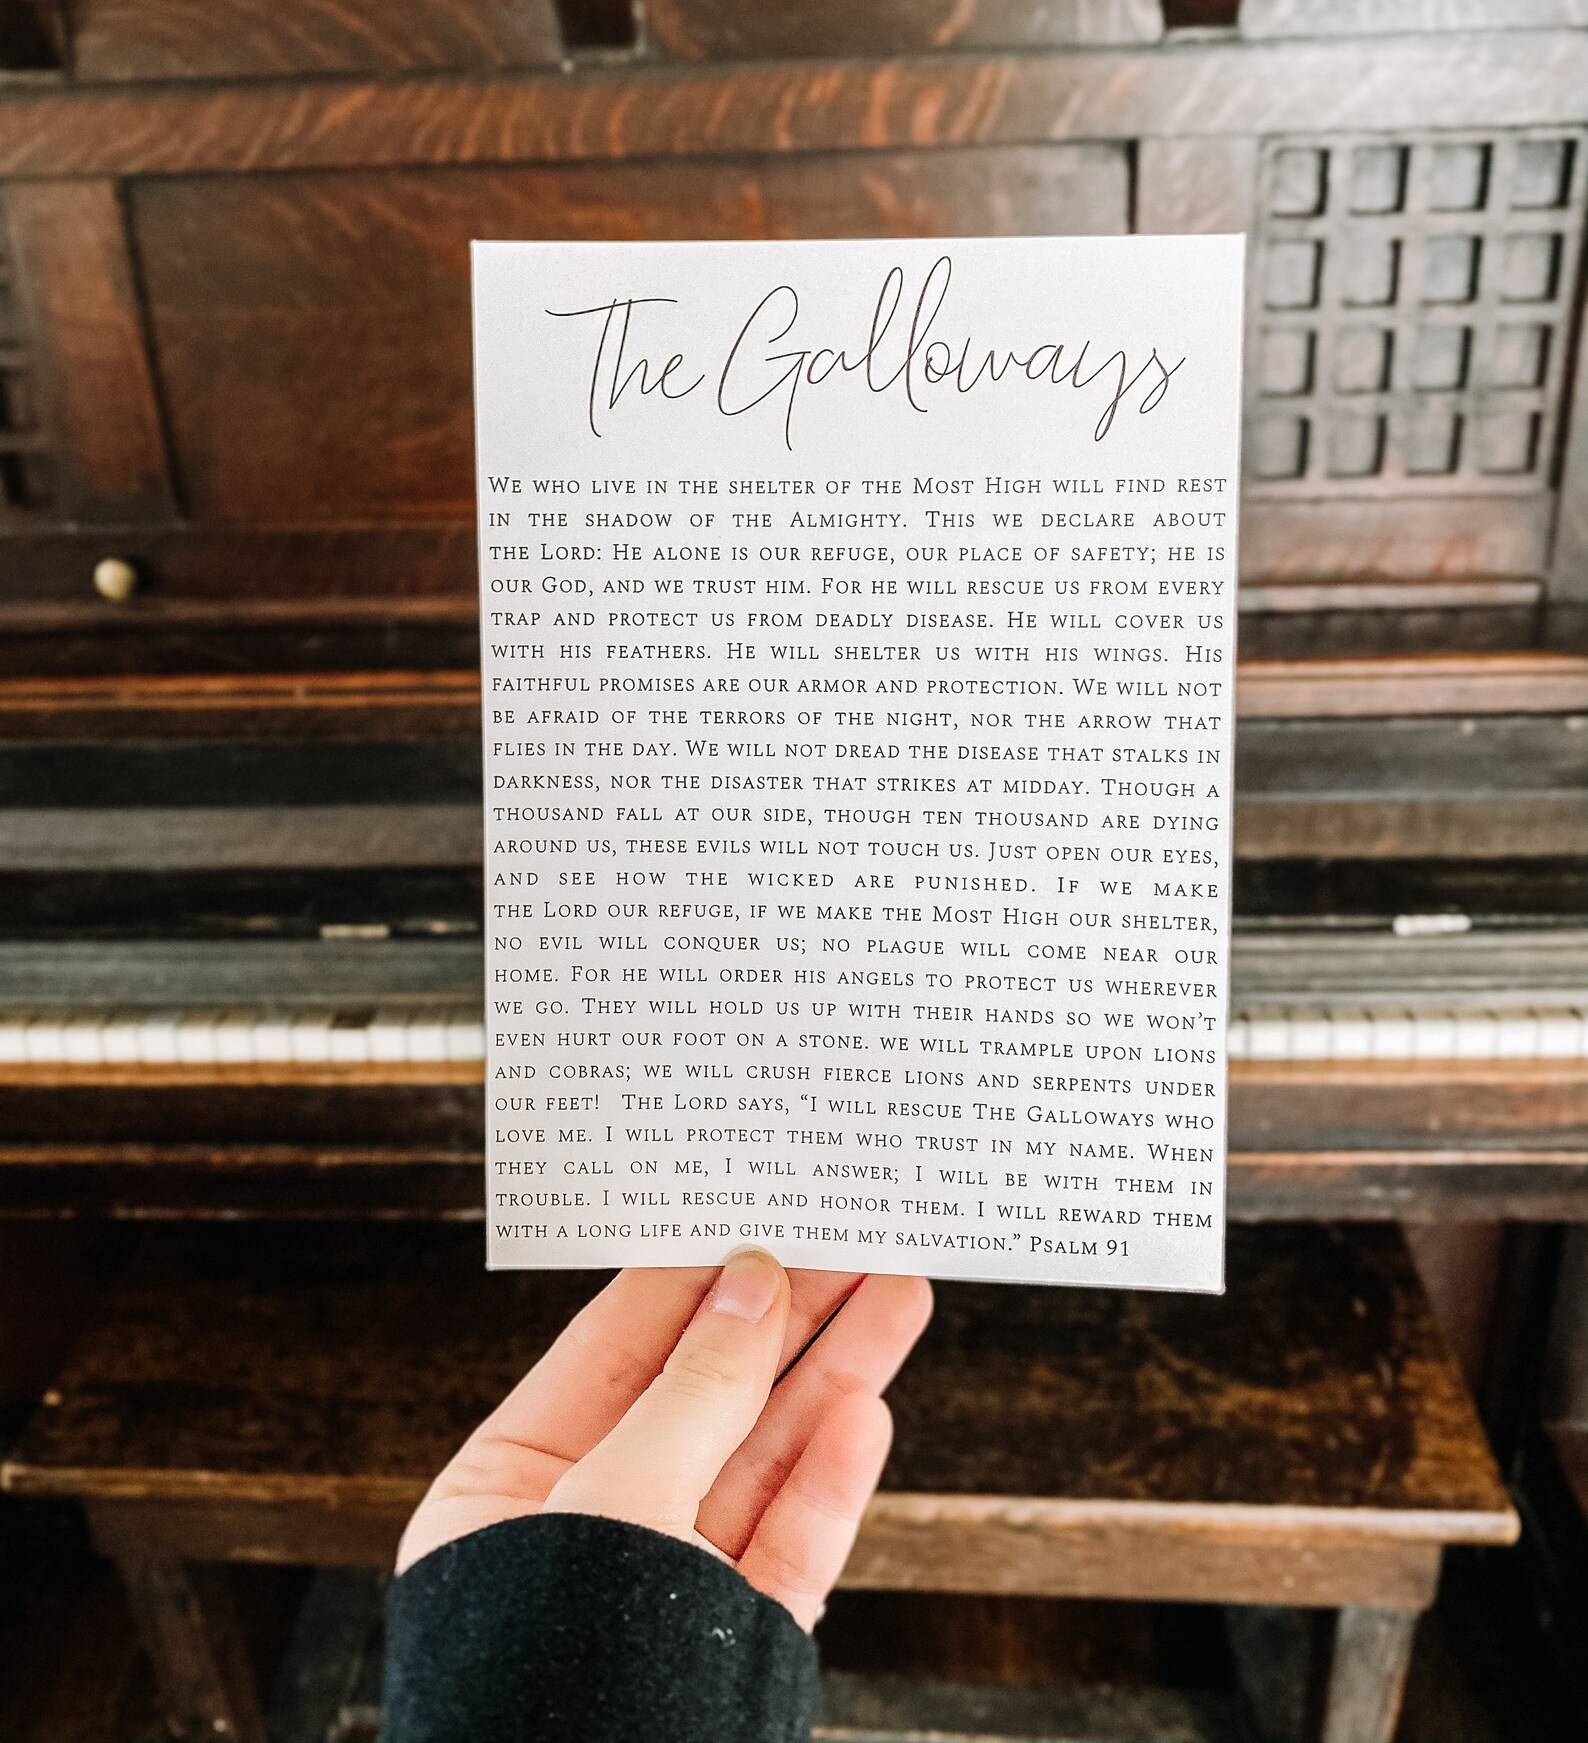 The Galloways
We who live in the shelter of the Most High will find rest
in the shadow of the Almighty. This we declare about
the Lord: He alone is our refuge, our place of safety; he is
our God, and we trust him. For he will rescue us from every
trap and protect us from deadly disease. He will cover us
with his feathers. He will shelter us with his wings. His
faithful promises are our armor and protection. We will not
be afraid of the terrors of the night, nor the arrow that
flies in the day. We will not dread the disease that stalks in
darkness, nor the disaster that strikes at midday. Though a
thousand fall at our side, though ten thousand are dying
around us, these evils will not touch us. Just open our eyes,
and see how the wicked are punished. If we make
the Lord our refuge, if we make the Most High our shelter,
no evil will conquer us; no plague will come near our
home. For he will order his angels to protect us wherever
we go. They will hold us up with their hands so we won’t
even hurt our foot on a stone. we will trample upon lions
and cobras; we will crush fierce lions and serpents under
our feet! The Lord says, “I will rescue The Galloways who
love me. I will protect them who trust in my name. When
they call on me, I will answer; I will be with them in
trouble. I will rescue and honor them. I will reward them
with a long life and give them my salvation.” Psalm 91